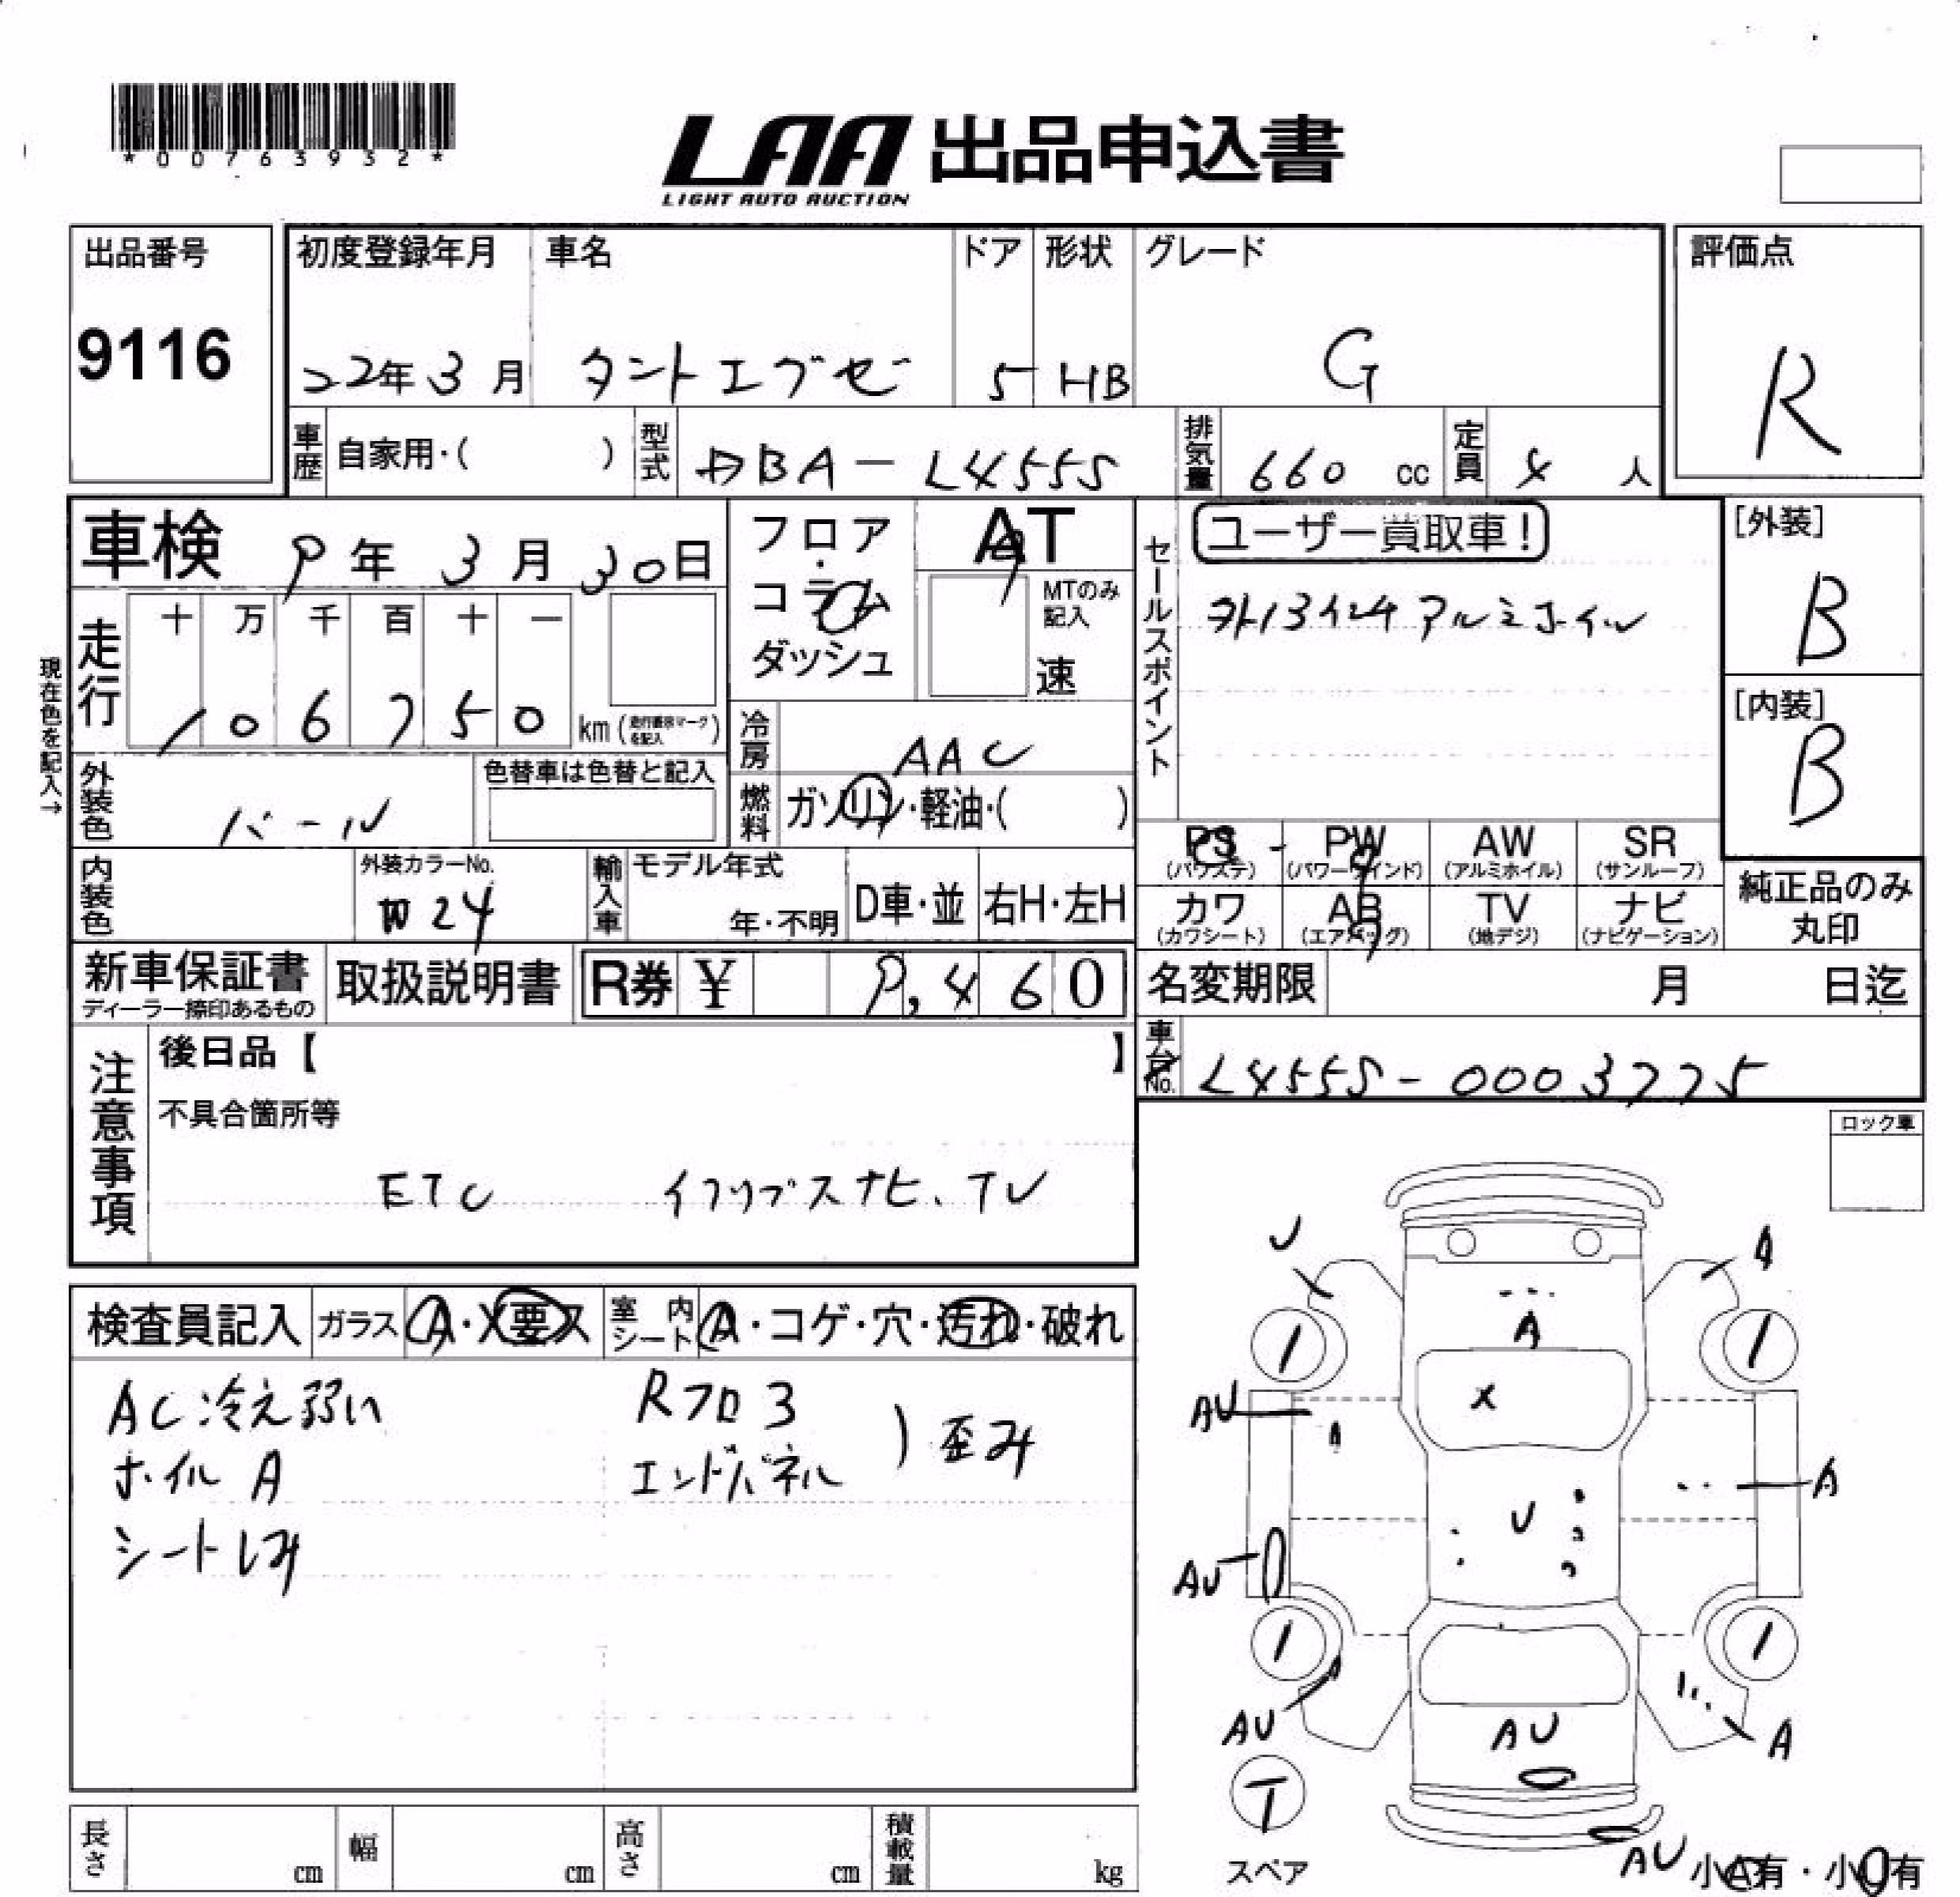 *00763932*
LAA 出品申込書
LIGHT AUTO AUCTION
出品番号
9116
初度登録年月 車名 ドア 形状 グレード
22年3月 タントエグゼ 5 HB G
評価点
R
車歴 自家用・( ) 型式 DBA-L455S 排気量 660 cc 定員 4 人
車検 9年3月30日
フロア・コラム ダッシュ
AT
MTのみ記入
速
セールスポイント
ユーザー買取車!
外13インチアルミホイル
[外装]
B
[内装]
B
現在色を記入→
走行 十 万 千 百 十 一
106750 km (走行距離マークを記入)
冷房 AAC
外装色 パール 色替車は色替と記入
燃料 ガソリン・軽油・( )
PS PW AW SR
(パワステ) (パワーウインド) (アルミホイル) (サンルーフ)
カワ AB TV ナビ
(カワシート) (エアバッグ) (地デジ) (ナビゲーション)
純正品のみ
丸印
内装色 外装カラーNo. W24 輸入車 モデル年式 年・不明 D車・並 右H・左H
新車保証書 取扱説明書 R券 ¥ 9,460
ディーラー捺印あるもの
名変期限 月 日迄
車台No. L455S-0003775
注意事項
後日品【 】
不具合箇所等
ETC イクリプスナビ、TV
ロック車
検査員記入 ガラス A・X要ス 室内シート A・コゲ・穴・汚れ・破れ
AC冷え弱い Rフロ3
ホイルA エンドパネル )歪み
シートしみ
U A
A
X
AU
A
U
AU
AU AU A
T
スペア
AU 小A有・小U有
長さ cm 幅 cm 高さ cm 積載量 kg